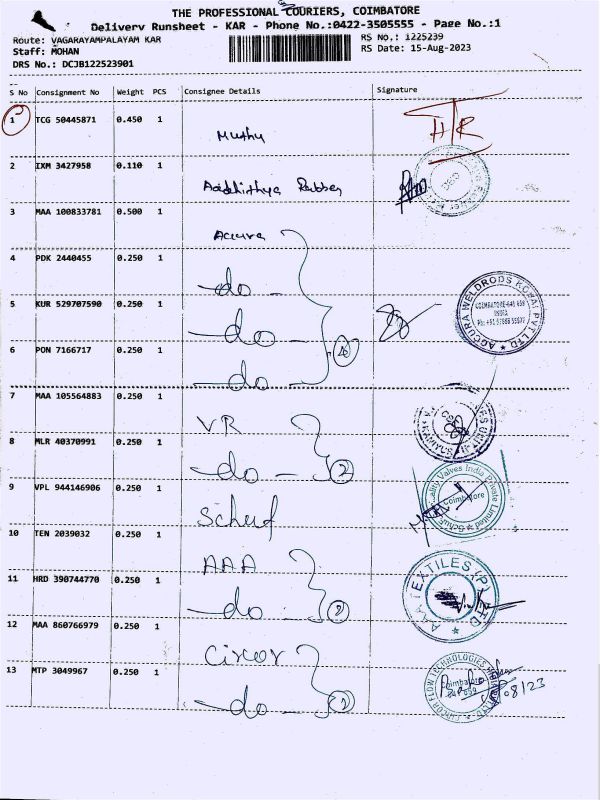 THE PROFESSIONAL COURIERS, COIMBATORE
Delivery Runsheet - KAR - Phone No.:0422-3505555 - Page No.:1
Route: VAGARAYAMPALAYAM KAR
RS NO.: 1225239
Staff: MOHAN
RS Date: 15-Aug-2023
DRS No.: DCJB122523901
S No Consignment No Weight PCS Consignee Details Signature
1 TCG 50445871 0.450 1
Muthu
H/R
2 IXM 3427958 0.110 1
Aadhithya Rubber
3 MAA 100833781 0.500 1
Accura
4 PDK 2440455 0.250 1
do
5 KUR 529707590 0.250 1
do
ACCURA WELDRODS KOVAI PVT LTD
COIMBATORE-641 659
INDIA
6 PON 7166717 0.250 1
do
7 MAA 105564883 0.250 1
VR
8 MLR 40370991 0.250 1
do 2
9 VPL 944146906 0.250 1
Schuf
Valves India Private Limited
Coimbatore
10 TEN 2039032 0.250 1
AAA
11 HRD 390744770 0.250 1
do 2
AAA TEXTILES (P) LTD
12 MAA 860766979 0.250 1
Circor
13 MTP 3049967 0.250 1
do 2
CIRCOR FLOW TECHNOLOGIES
Coimbatore
08/23